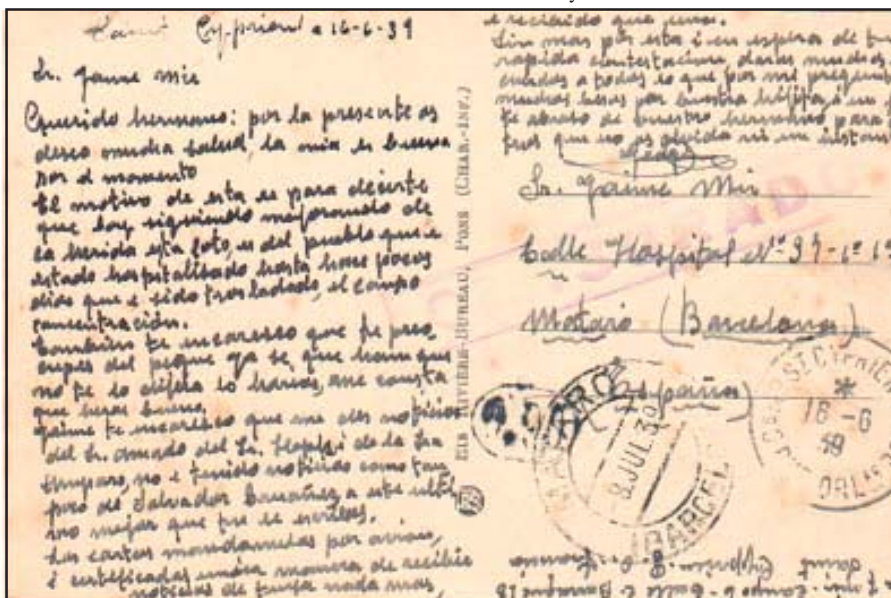 Saint Cyprien a 16-6-39
Sr. Jaime Mir
Querido hermano: por la presente os
deseo mucha salud, la mia es buena
por el momento
El motivo de esta es para decirte
que boy siguiendo mejorando de
la herida esta foto, es del pueblo que e
estado hospitalisado hasta hase pocos
dias que e sido trasladado, el campo
concentración.
También te encaresco que te preo,
cupes del peque ya se, que haun que
no te lo dijera lo harias, me consta
que heres bueno.
Jaime te encaresco que me des noticias
del Sr. Amado del Sr. i de la Sra
Amparo, no e tenido noticias como tam,
poco de Salvador a este ulti,
mo mejor que tu le escribas.
Las cartas mandamelas por avion,
i certificadas unica manera de recibir
noticias de tuya nada mas,
e recibido que una.
Sin mas por esta i en espera de tu
rapida contestacion, daras muchos
a todos lo que por mi pregun
muchos besos por buestra hijita, i un
te abraso de buestro hermano para
tros que no os olvida ni un instan
Sr. Jaime Mir
Calle Hospital Nº 37-1º 1ª
Mataró (Barcelona)
(España)
MATARÓ
-8 JUL 39
(BARCEL
ST CYPRIEN
*
16-6
39
ORIENT
EIS RIVIERE-BUREAU, PONS (CHAR.-INF.)
J. Mir. Campo 6 - Calle C. Barraque 18
Saint Cyprien. P. O. Francia